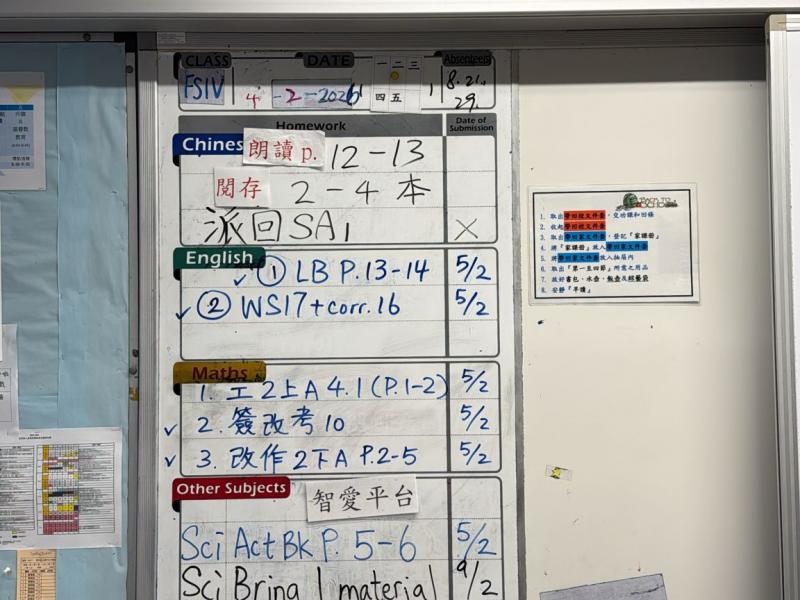 CLASS DATE Absentee(s)
FSIV 4-2-2026 一 二 三 四 五 8. 21. 29.
Homework Date of Submission
Chines 朗讀 p. 12-13
閱存 2-4 本
派回SA1 ×
English ① LB P.13-14 5/2
② WS17+corr.16 5/2
Maths
1. 工2上A 4.1 (P.1-2) 5/2
2. 簽改考10 5/2
3. 改作2下A P.2-5 5/2
Other Subjects 智愛平台
Sci Act Bk P. 5-6 5/2
Sci Bring 1 material 9/2
BACK TO SCHOOL
1. 取出學回校文件套,交功課和回條
2. 收起學回校文件套
3. 取出學回家文件套,登記『家課冊』
4. 將『家課冊』放入學回家文件套
5. 將學回家文件套放入抽屜內
6. 取出『第一至四節』所需之用品
7. 放好書包、水壺、飯壺及綜藝袋
8. 安靜『早讀』